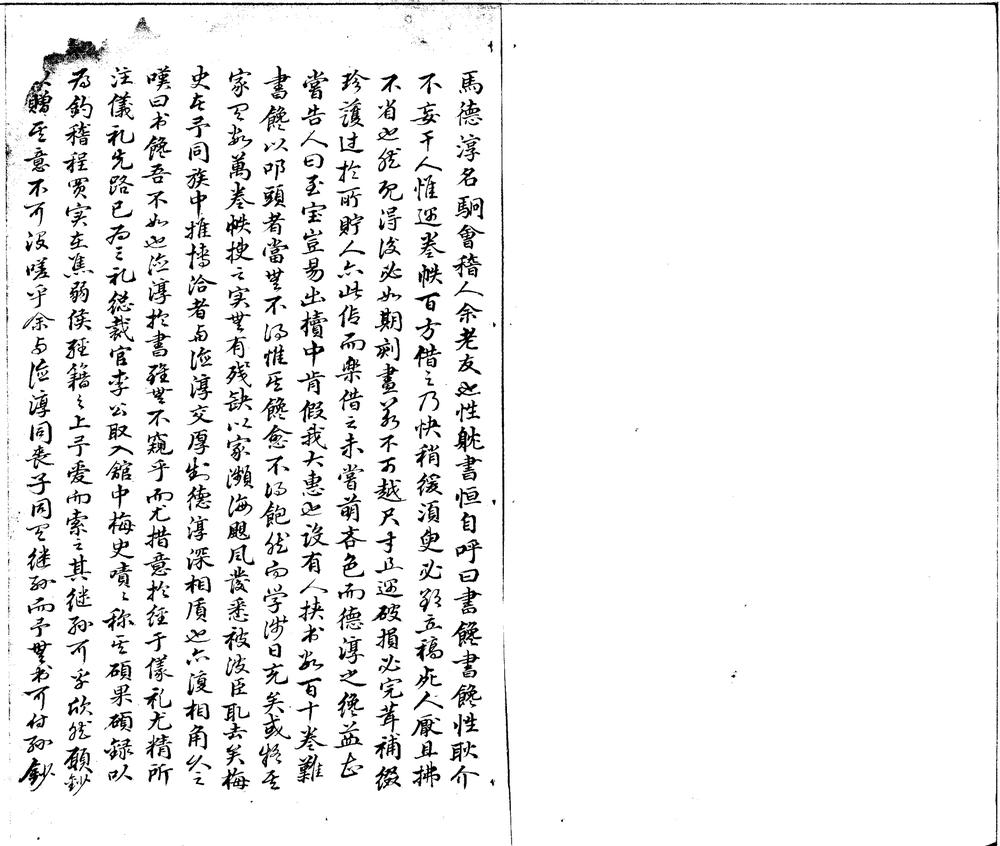 馬德淳名駉會稽人余老友也性躭書恒自呼曰書饞書饞性耿介
不妄干人惟遇卷帙百方借之乃快稍緩須臾必欲立稿死人厭且拂
不省也然旣得後必如期刻畫若不可越尺寸且遇破損必完葺補綴
珍護过於所貯人亦以此信而樂借之未嘗萌吝色而德淳之饞益甚
嘗告人曰至宝豈易出櫝中肯假我大惠也设有人挾书数百十卷難
書饞以叩頭者當無不为惟其饞愈不为飽然而学涉日充矣或将其
家有数萬卷帙搜之实無有残缺以家瀕海颶風發悉被波臣取去矣梅
史在予同族中推博洽者与德淳交厚對德淳深相質也亦復相角久之
嘆曰书饞吾不如也德淳於書雖無不窺乎而尤措意於经于儀礼尤精所
注儀礼先路已为三礼總裁官李公取入館中梅史啧啧称其碩果碩録以
为鈎稽程買实在焦弱侯经籍之上予愛而索之其继孙可孚欣然願鈔
以贈其意不可没嗟乎余与德淳同喪子同有继孙而予無书可付孙鈔